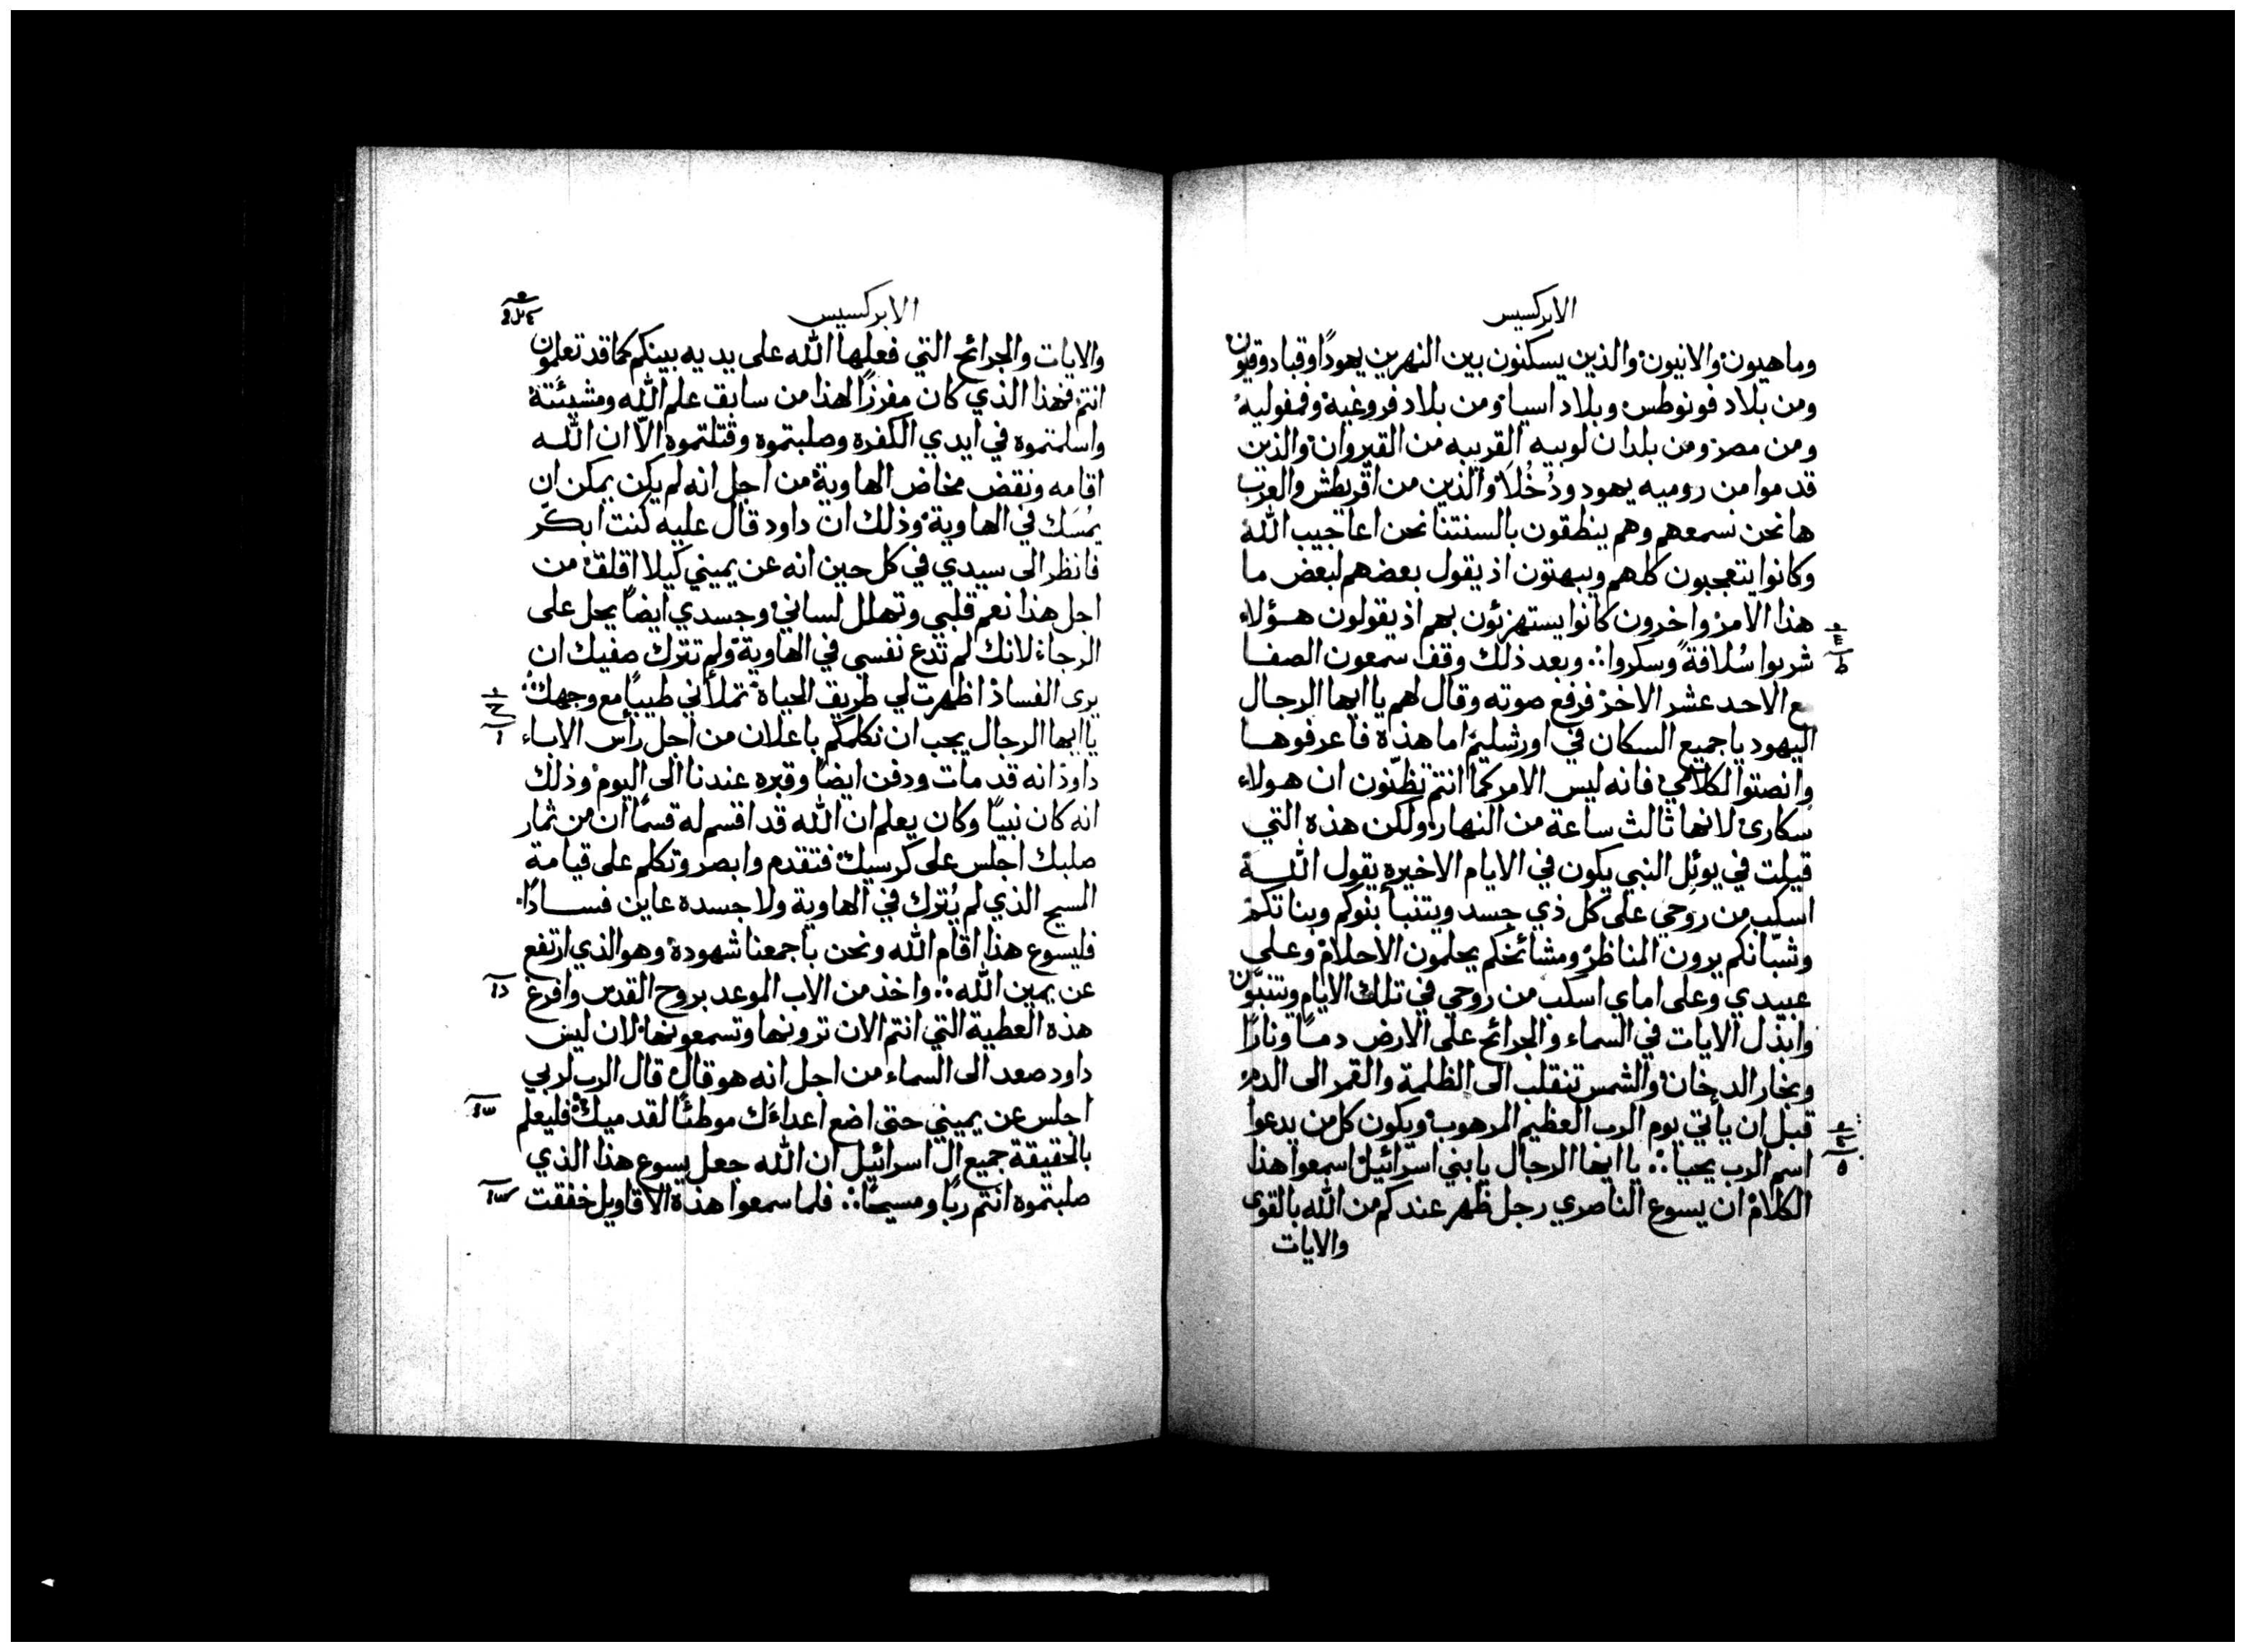 الابركسيس
وماهيون والانيون والذين يسكنون بين النهرين يهودًا وقبادوقيون
ومن بلاد فونوطس وبلاد اسيا ومن بلاد فروغية وفمفوليه
ومن مصر ومن بلدان لوبيه القريبه من القيروان والذين
قدموا من روميه يهود ودُخُلَا والذين من اقريطش والعرب
ها نحن نسمعهم وهم ينطقون بالسنتنا نحن اعاجيب الله
وكانوا يتعجبون كلهم ويبهتون اذ يقول بعضهم لبعض ما
هذا الامر واخرون كانوا يستهزئون بهم اذ يقولون هـؤلاء
شربوا سُلافةً وسكروا ∴ وبعد ذلك وقف سمعون الصفا
مع الاحد عشر الاخر فرفع صوته وقال لهم يا ايها الرجال
اليهود يا جميع السكان في اورشليم اما هذه فاعرفوهـا
وانصتوا لكلامي فانه ليس الامر كما انتم تظنّون ان هولاء
سكارى لانها ثالث ساعة من النهار ولكن هذه التي
قيلت في يوئل النبي يكون في الايام الاخيره يقول اللـه
اسكب من روحي على كل ذي جسد ويتنبأ بنوكم وبناتكم
وشبّانكم يرون المناظر ومشائخكم يحلمون الاحلام وعلى
عبيدي وعلى اماي اسكب من روحي في تلك الايام ويتنبّون
وابذل الايات في السماء والجرائح على الارض دمـًا ونارًا
وبخار الدخان والشمس تنقلب الى الظلمة والقمر الى الدم
قبل ان يأتي يوم الرب العظيم المرهوب ويكون كل من يدعوا
اسم الرب يحيا ∴ يا ايها الرجال يا بني اسرائيل اسمعوا هذا
الكلام ان يسوع الناصري رجل ظهر عندكم من الله بالقوى
والايات
الابركسيس
والايات والجرائح التي فعلها الله على يديه بينكم كما قد تعلمون
انتم فهذا الذي كان مفرزًا لهذا من سابق علم الله ومشيئته
واسلمتموه في ايدي الكفره وصلبتموه وقتلتموه الاّ ان اللـه
اقامه ونقض مخاض الهاوية من اجل انه لم يكن يمكن ان
يمُسَك في الهاوية وذلك ان داود قال عليه كنت ابكّر
فانظر الى سيدي في كل حين انه عن يميني كيلا اقلق من
اجل هذا نعم قلبي وتهلل لساني وجسدي ايضًا يحل على
الرجاء لانك لم تدع نفسي في الهاوية ولم تترك صفيك ان
يرى الفساد اظهرت لي طريق الحياة تملأني طيبًا مع وجهك
يا ايها الرجال يجب ان نكلمكم باعلان من اجل رأس الاباء
داود انه قد مات ودفن ايضًا وقبره عندنا الى اليوم وذلك
انه كان نبيًا وكان يعلم ان الله قد اقسم له قسمًا ان من ثمار
صلبك اجلس على كرسيك فتقدم وابصر وتكلم على قيامة
المسيح الذي لم يُترك في الهاوية ولا جسده عاين فسـادًا
فليسوع هذا اقام الله ونحن باجمعنا شهوده وهو الذي ارتفع
عن يمين الله ∴ واخذ من الاب الموعد بروح القدس وافرغ
هذه العطية التي انتم الان ترونها وتسمعونها لان ليس
داود صعد الى السماء من اجل انه هو قال قال الرب لربي
اجلس عن يميني حتى اضع اعداءَك موطئًا لقدميك فليعلم
بالحقيقة جميع ال اسرائيل ان الله جعل يسوع هذا الذي
صلبتموه انتم ربًا ومسيحًا ∴ فلما سمعوا هذه الاقاويل خفقت